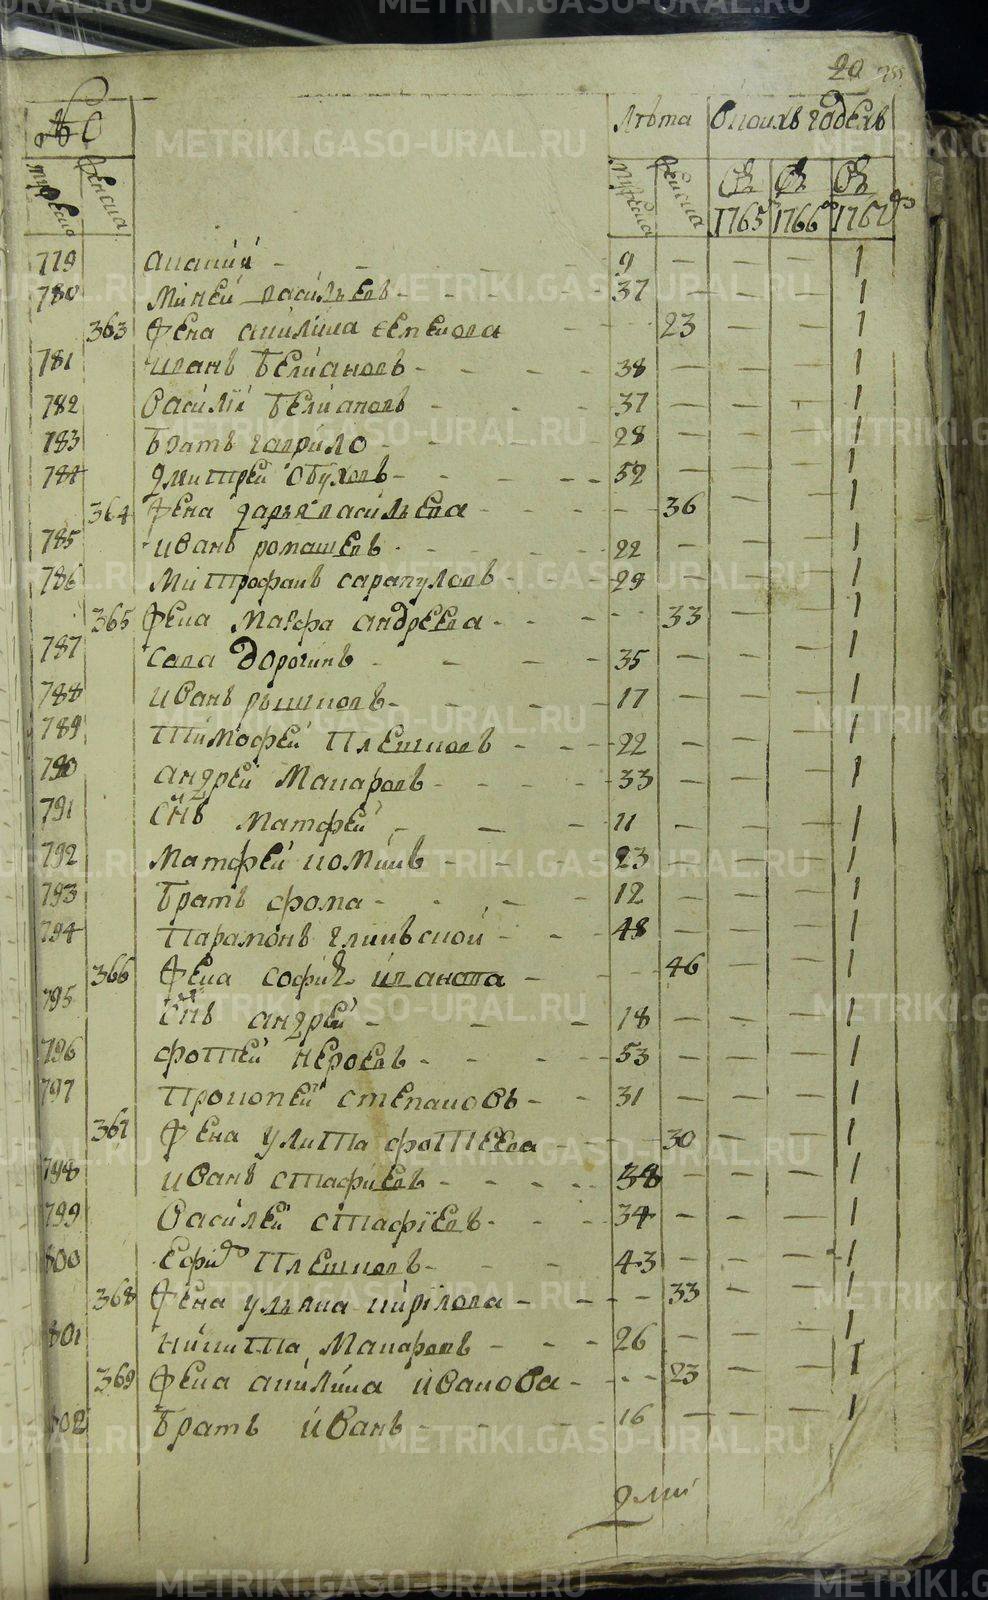 METRIKI.GASO-URAL.RU
20
№
Лѣта
мужеска
женска
мужеска
женска
Съ 1765
Съ 1766
Съ 1767
779 ананий - - - 9 - - - 1
780 Миней васильевъ - - - 37 - - - 1
363 Жена акилина семенова - - 23 - - 1
781 иванъ белиановъ - - - 38 - - - 1
782 василей белиановъ - - - 37 - - - 1
783 братъ гаврило - - - 28 - - - 1
784 дмитрей обуховъ - - - 52 - - - 1
364 Жена дарья васильева - - - 36 - - 1
785 иванъ ромашевъ - - - 22 - - - 1
786 Митрофанъ сарапуловъ - - 29 - - - 1
365 Жена Марфа андреева - - - 33 - - 1
787 сава дорогинъ - - - 35 - - - 1
788 иванъ - - - 17 - - - 1
789 тимофей плешковъ - - 22 - - - 1
790 андрей Макаровъ - - - 33 - - - 1
791 снъ матфей - - - 11 - - - 1
792 матфей - - - 23 - - - 1
793 братъ фома - - - 12 - - - 1
794 парамонъ глинской - - 48 - - - 1
366 Жена софия иванова - - - 46 - - 1
795 снъ андрей - - - 18 - - - 1
796 фотей - - - 53 - - - 1
797 прокопей степановъ - - 31 - - - 1
367 Жена улита фотеева - - - 30 - - 1
798 иванъ стафиевъ - - - 38 - - - 1
799 василей стафиевъ - - - 34 - - - 1
800 плешковъ - - - 43 - - - 1
368 Жена ульяна кирилова - - - 33 - - 1
801 никита Макаровъ - - 26 - - - 1
369 Жена акилина иванова - - - 23 - - 1
802 братъ иванъ - - - 16 - - - 1